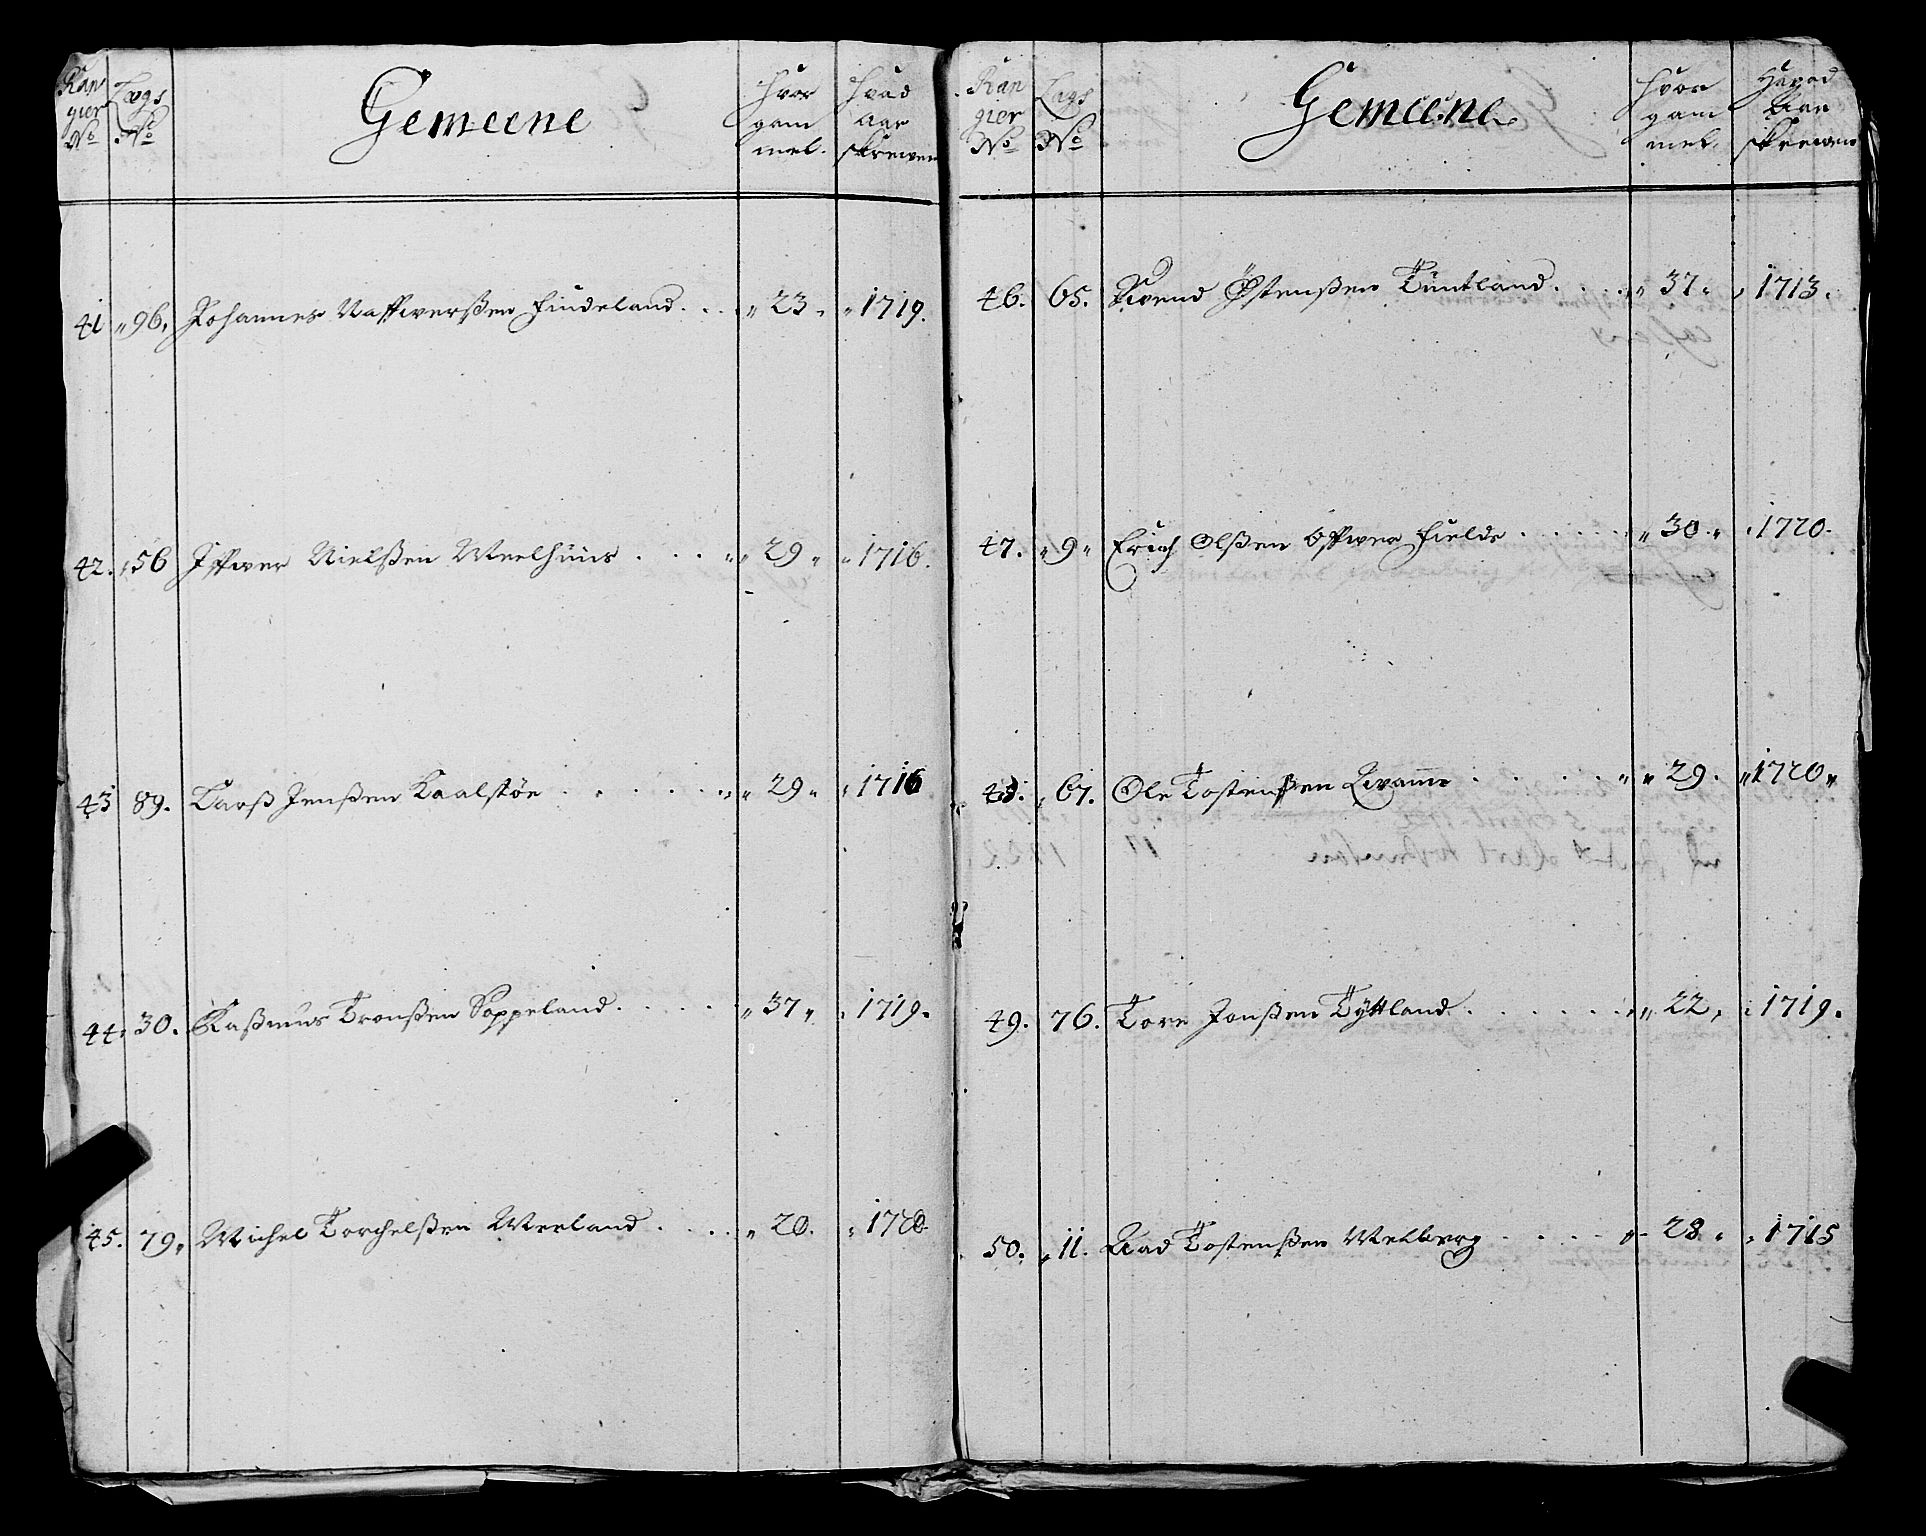 Ran
gier
No
Lags
No
Gemeene
Hvor
gam
mel.
Hvad
Aar
skrewen
41 96. Johannes Raffwerßen Findeland 23 1719.
42. 56 Iffwer Nielßen Weelhuus 29 1716.
43 89. Larß Jenßen Kaalstøe 29 1716
44 30. Raßmus Tronßen Soppeland 37 1719.
45. 79 Michel Torchelßen Meeland 20. 1720
Ran
gier
No
Lags
No
Gemeene
Hvor
gam
mel.
Hvad
Aar
skrewen
46. 65. Swend Østenßen Tuntland 37 1713.
47. 9 Erich Olßen Offwer Fielde 30 1720.
48. 67. Ole Tostenßen Qvame 29. 1720
49. 76. Tore Jonßen Tyttland 22 1719.
50. 11. Aad Tostenßen Melberg 28 1715